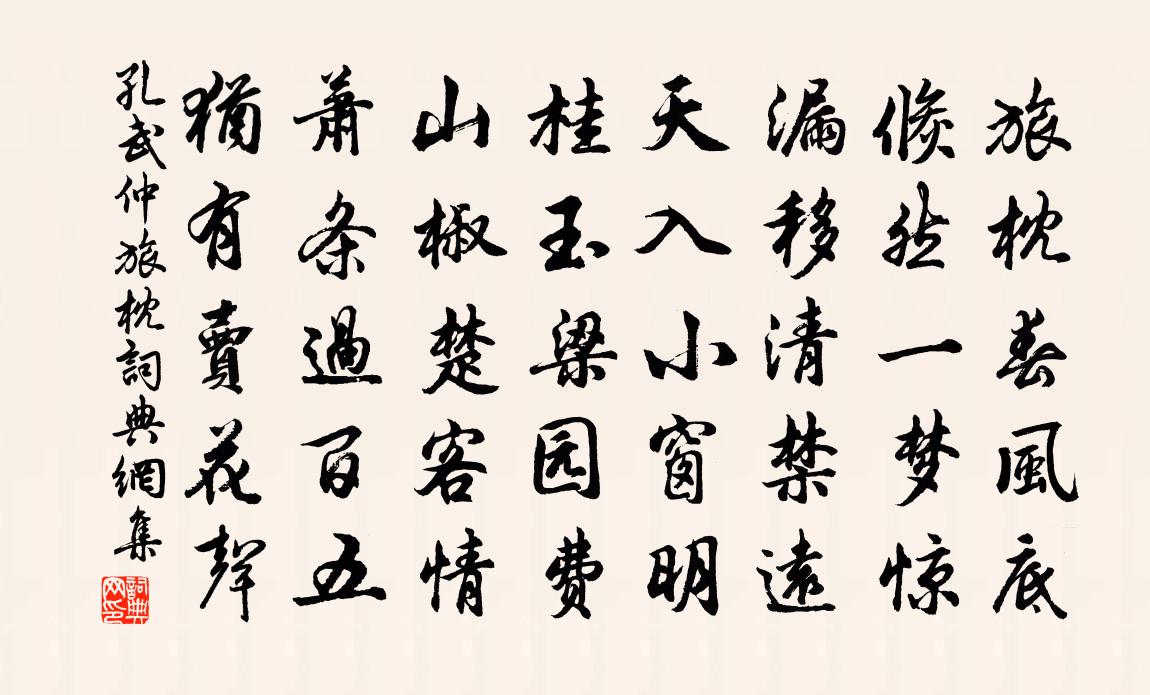 旅枕春風底
倐然一梦惊
漏移清禁遠
天入小窗明
桂玉梁园費
山椒楚客情
蕭条過百五
猶有賣花聲
孔武仲旅枕詞典網集
詞典网印